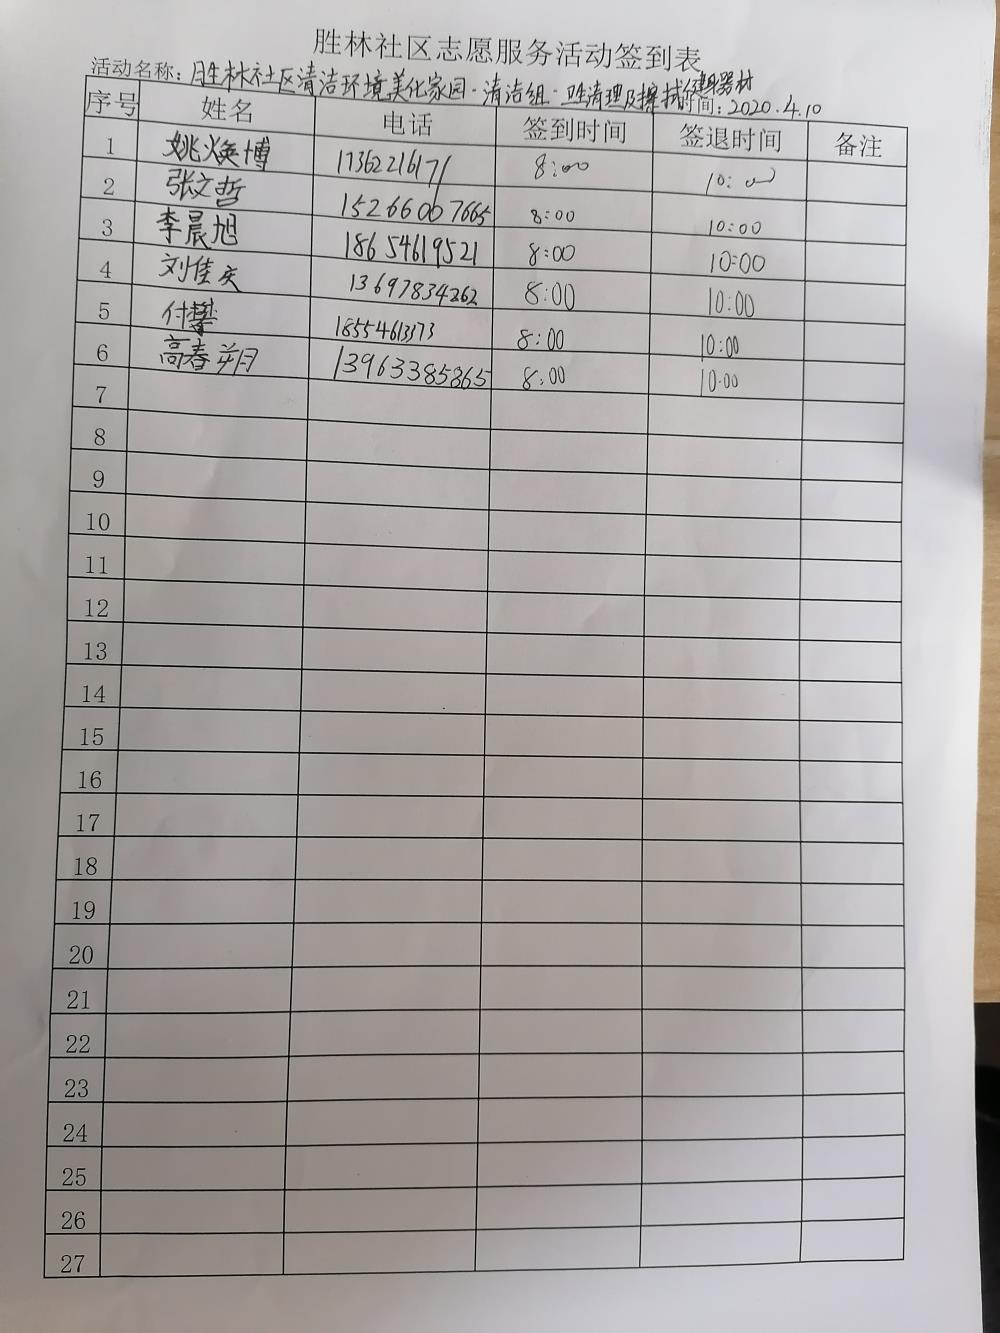 胜林社区志愿服务活动签到表
活动名称：胜林社区清洁环境美化家园·清洁组·卫生清理及擦拭健身器材 时间：2020.4.10
序号 姓名 电话 签到时间 签退时间 备注
1 姚焕博 17362216171 8:00 10:00
2 张文哲 15266007665 8:00 10:00
3 李晨旭 18654619521 8:00 10:00
4 刘佳庆 13697834262 8:00 10:00
5 付攀 18554613173 8:00 10:00
6 高春朔 13963385865 8:00 10:00
7
8
9
10
11
12
13
14
15
16
17
18
19
20
21
22
23
24
25
26
27